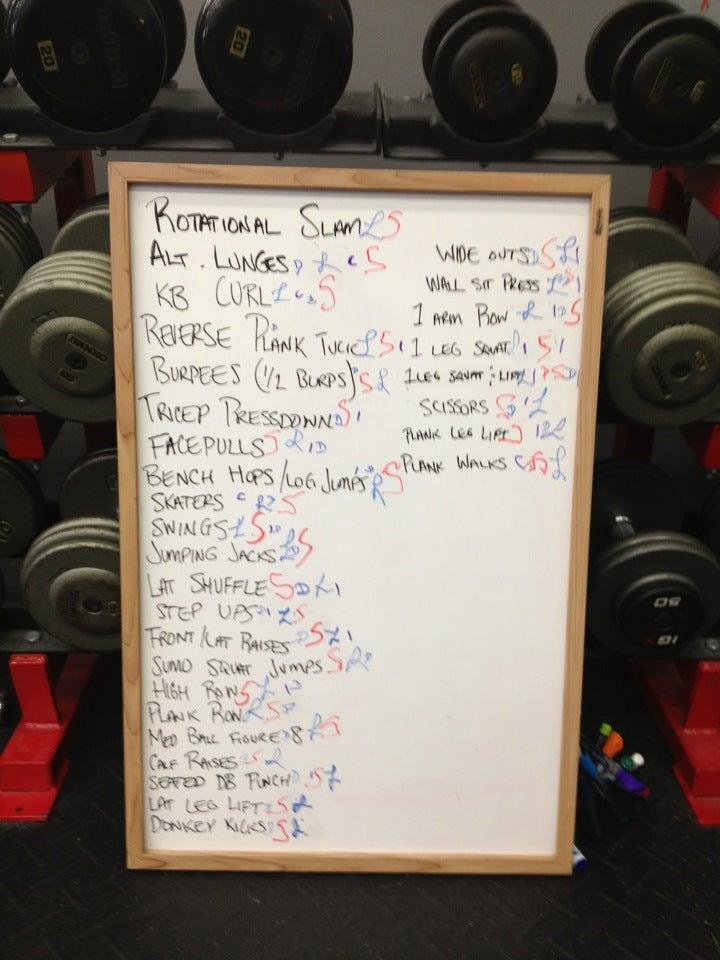 20
20
ROTATIONAL SLAM L S
ALT. LUNGES D L C S
KB CURL L S
REVERSE PLANK TUCK L S
BURPEES (1/2 BURPS) S L
TRICEP PRESSDOWN D S 1
FACEPULLS S L 1 D
BENCH HOPS/LOG JUMPS L S
SKATERS C L S
SWINGS L S
JUMPING JACKS L S
LAT SHUFFLE S D L 1
STEP UPS L S
FRONT/LAT RAISES S L 1
SUMO SQUAT JUMPS S L
HIGH ROW S L
PLANK ROW L S
MED BALL FIGURE 8 L S
CALF RAISES S L
SEATED DB PUNCH S L
LAT LEG LIFT S L
DONKEY KICKS S L
WIDE OUTS D S L 1
WALL SIT PRESS L
1 ARM ROW L S
1 LEG SQUAT 1 S 1
1 LEG SQUAT ; LIFT
SCISSORS S L
PLANK LEG LIFT S L
PLANK WALKS C S L
50